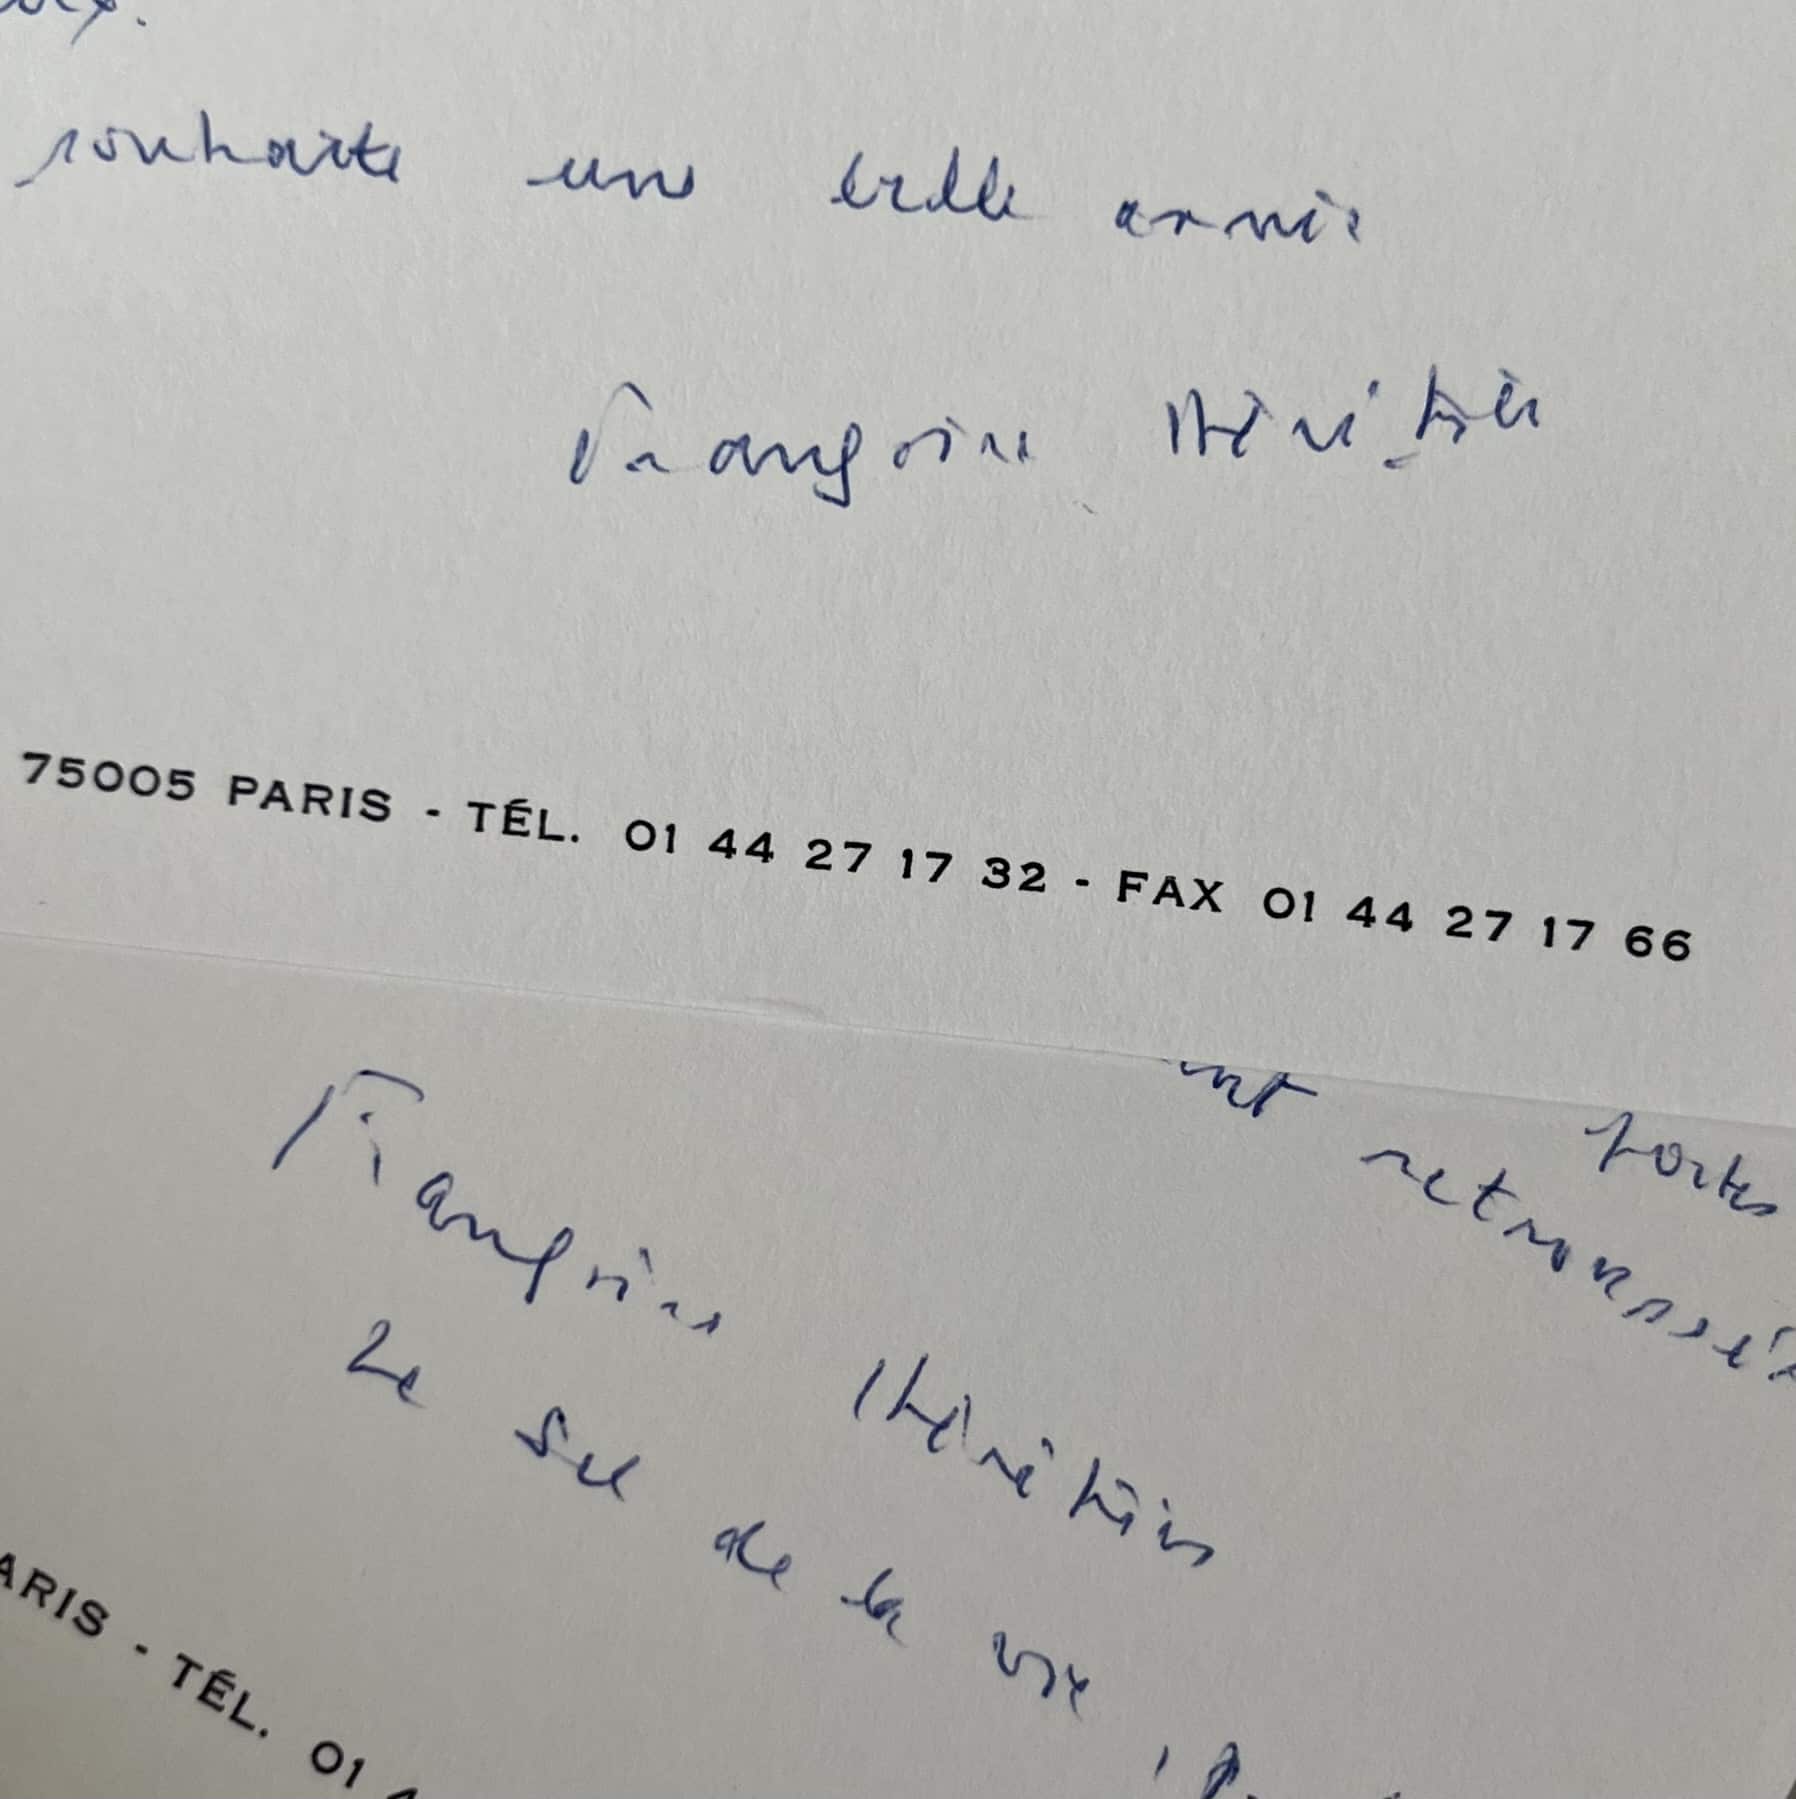 souhaite une belle année
Françoise Héritier
75005 PARIS - TÉL. 01 44 27 17 32 - FAX 01 44 27 17 66
portes
retroussées
Françoise Héritier
Le Sel de la vie
ARIS - TÉL. 01